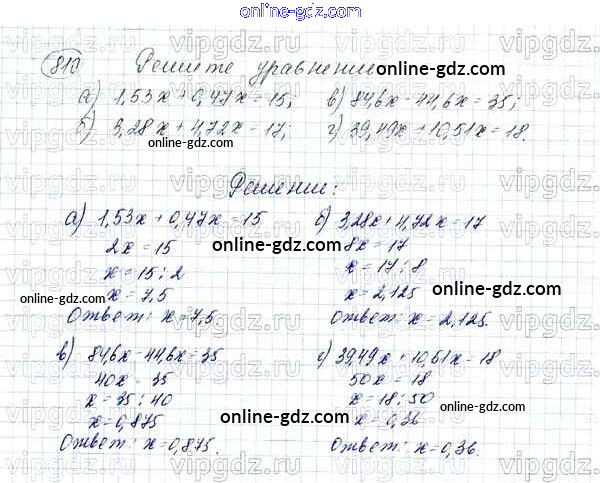 online-gdz.com
810 Решите уравнение online-gdz.com
а) 1,53x + 0,47x = 15; в) 84,6x - 44,6x = 35;
б) 3,28x + 4,72x = 17; г) 39,49x + 10,51x = 18.
online-gdz.com
Решении:
а) 1,53x + 0,47x = 15
2x = 15
x = 15 : 2
x = 7,5
Ответ: x = 7,5
online-gdz.com
б) 3,28x + 4,72x = 17
8x = 17
x = 17 : 8
x = 2,125
Ответ: x = 2,125.
online-gdz.com
online-gdz.com
в) 84,6x - 44,6x = 35
40x = 35
x = 35 : 40
x = 0,875
Ответ: x = 0,875.
г) 39,49x + 10,51x = 18
50x = 18
x = 18 : 50
x = 0,36
Ответ: x = 0,36.
online-gdz.com
online-gdz.com
vipgdz.com